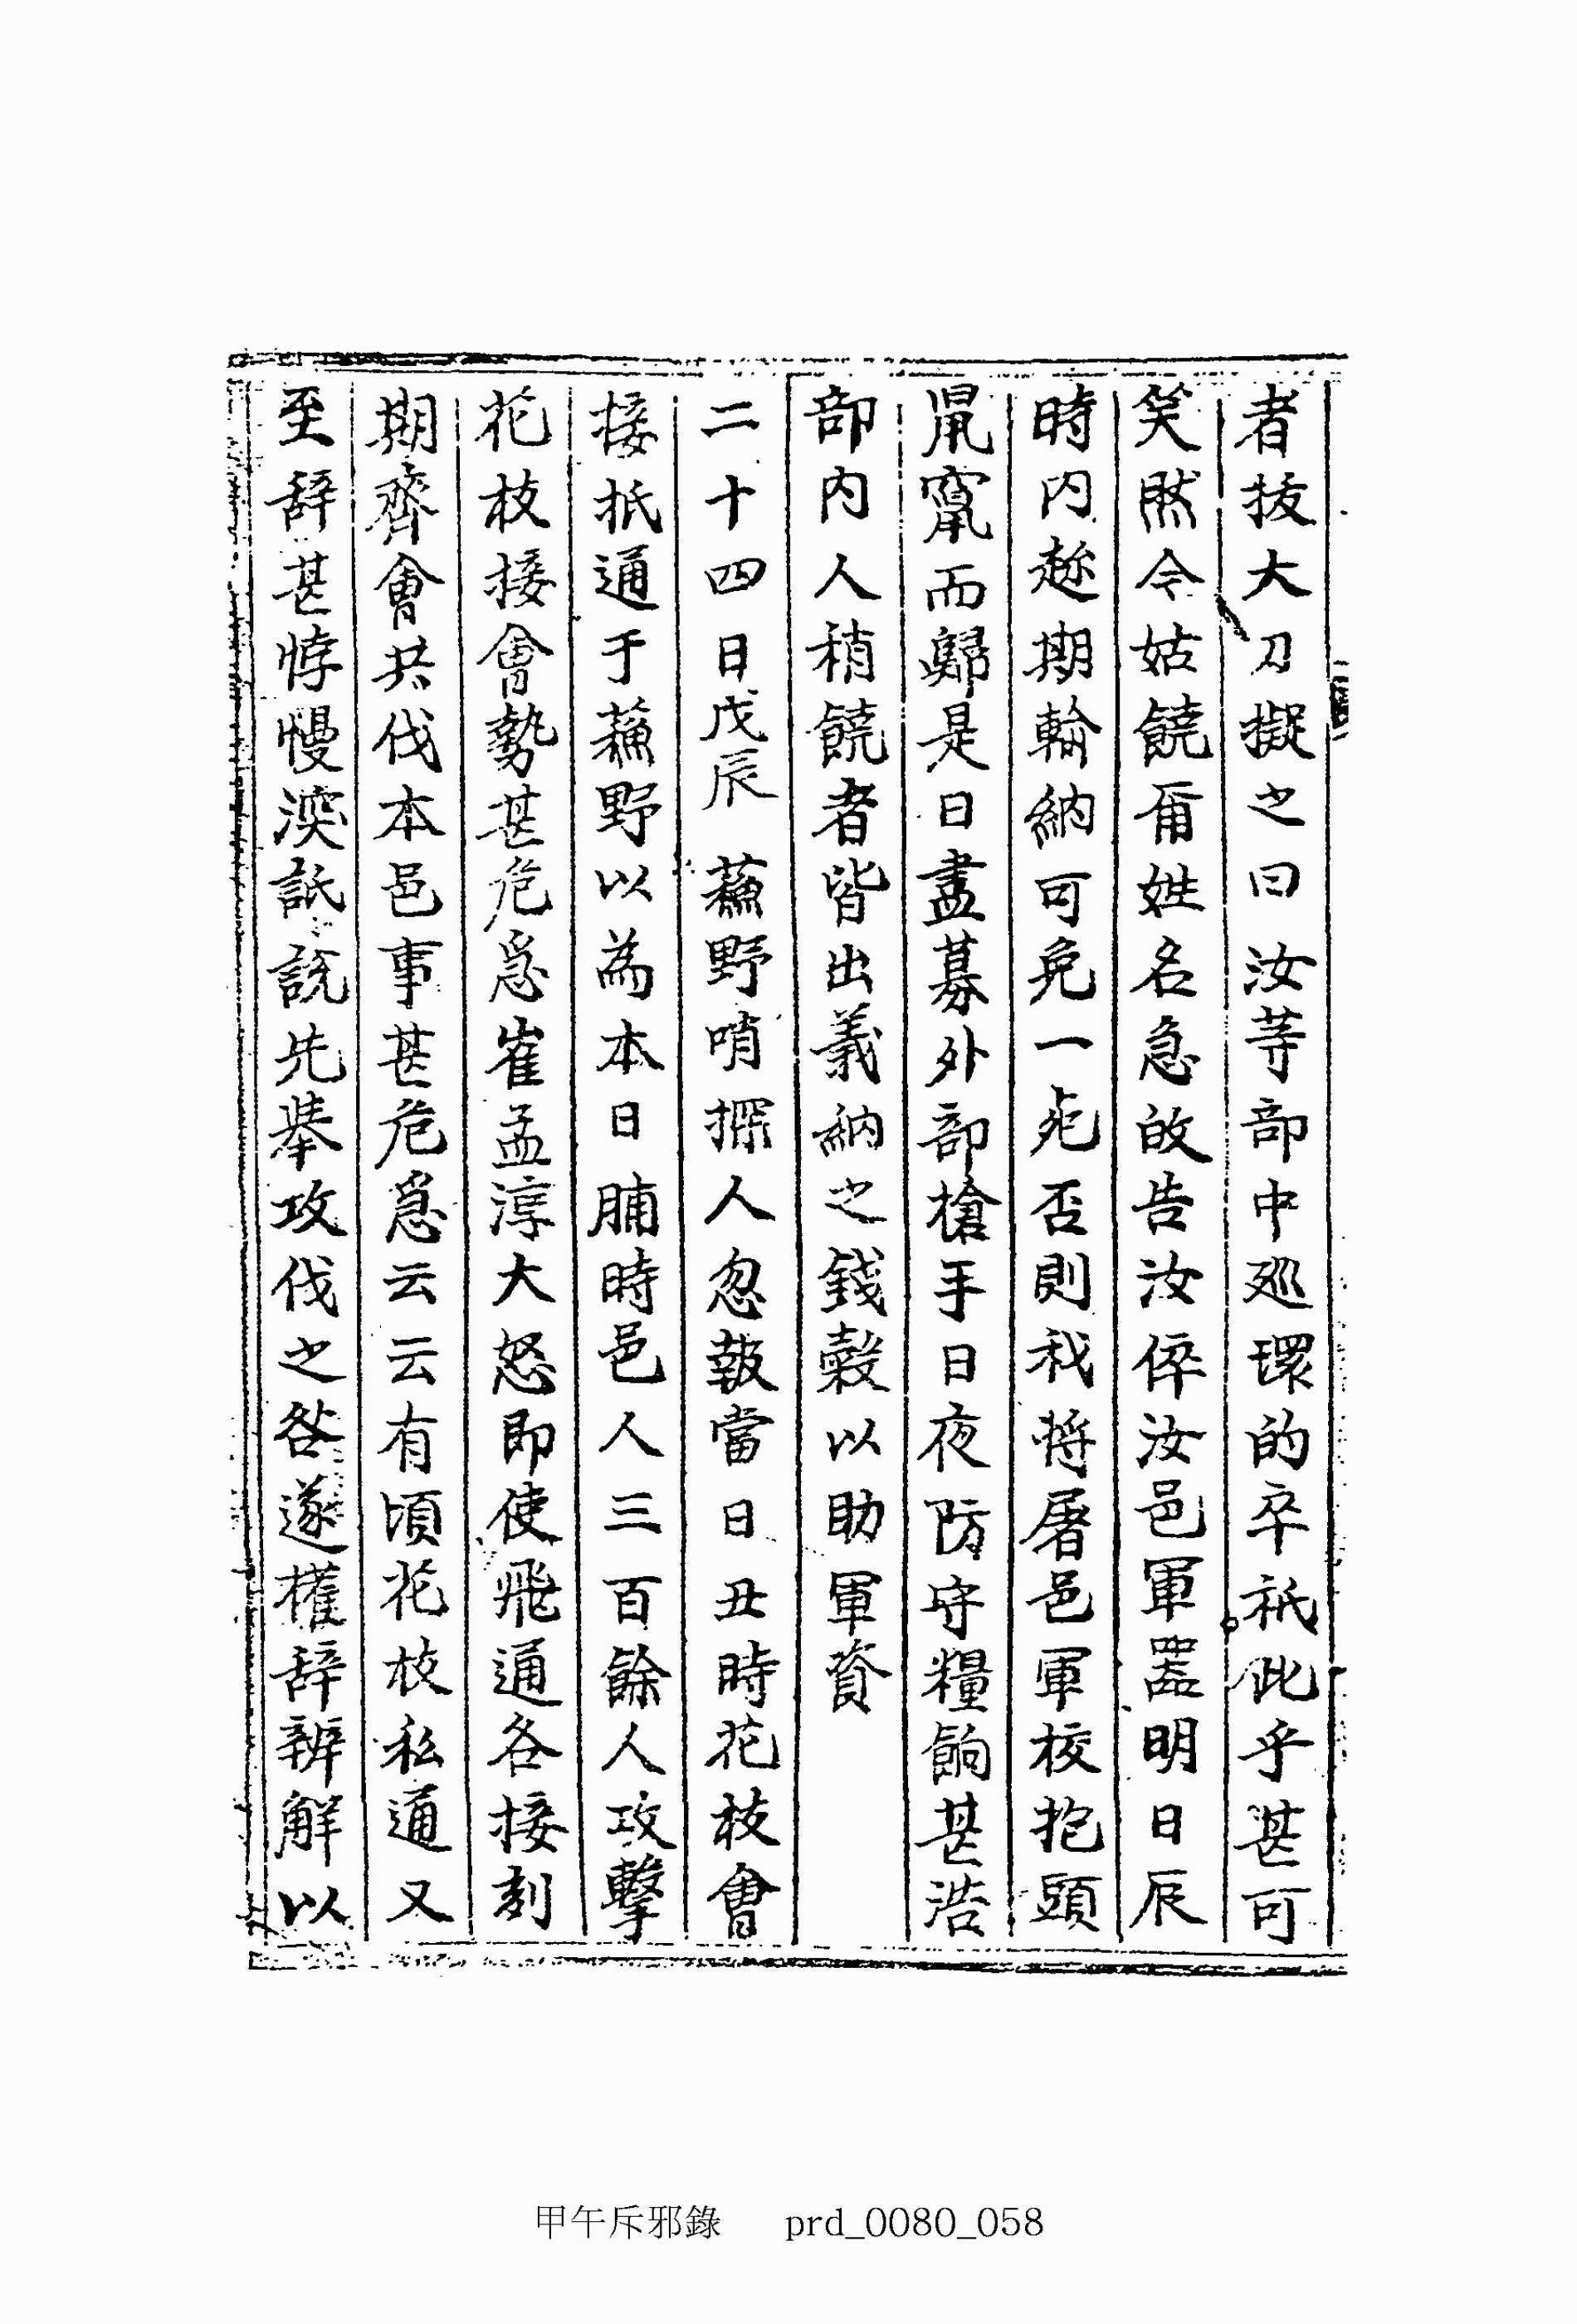 者拔大刀擬之曰汝等部中廵環的卒秖此乎甚可
笑然今姑饒甭姓名急放告汝倅汝邑軍器明日辰
時内趂期輪納可免一死否則我將屠邑軍校抱頭
鼠竄而歸是日盡募外部槍手日夜防守糧餉甚浩
部内人稍饒者皆出義納之錢穀以助軍資
二十四日戊辰 蘓野哨探人忽報當日丑時花枝會
接抵通于蘓野以為本日脯時邑人三百餘人攻擊
花枝接會勢甚危急崔孟淳大怒即使飛通各接刻
期齊會共伐本邑事甚危急云云有頃花枝私通又
至辞甚悖慢深詆說先擧攻伐之咎遂權辞辨解以
甲午斥邪錄 prd_0080_058